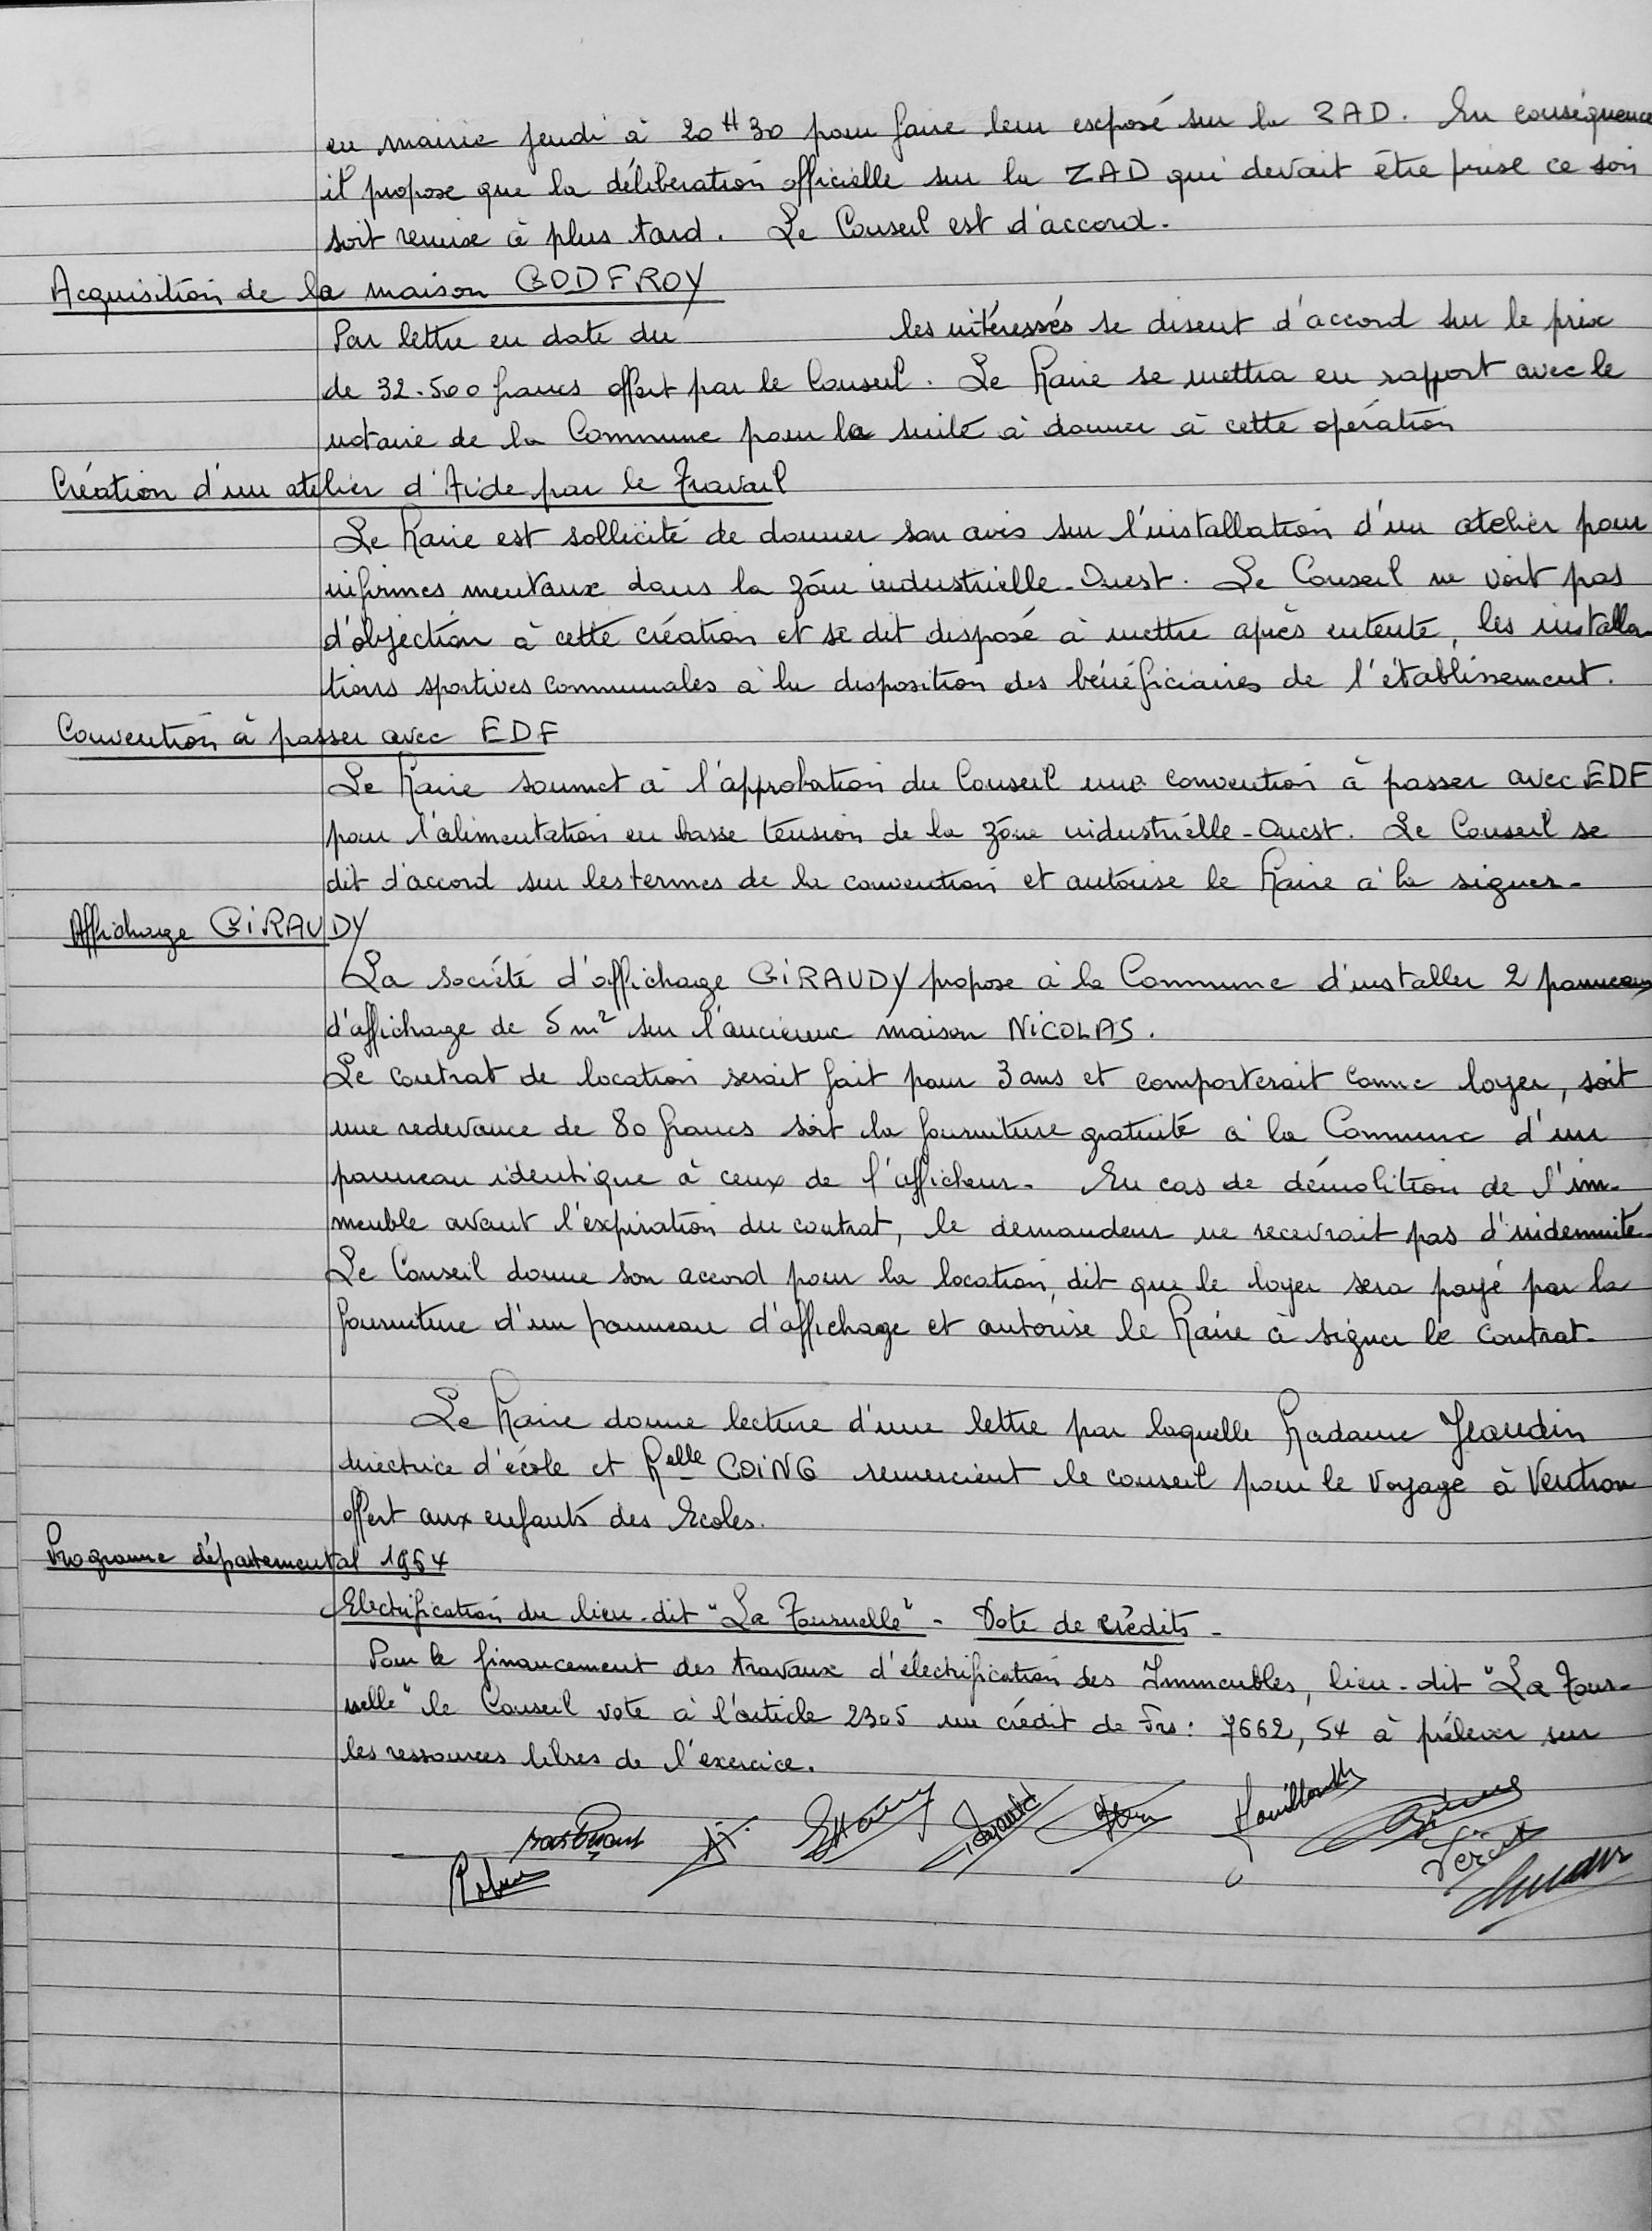 en mairie jeudi à 20H30 pour faire leur exposé sur la ZAD. En conséquence
il propose que la délibération officielle sur la ZAD qui devait être prise ce soir
soit remise à plus tard. Le Conseil est d'accord.
Acquisition de la maison GODFROY
Par lettre en date du les intéressés se disent d'accord sur le prix
de 32.500 francs offert par le Conseil. Le Maire se mettra en rapport avec le
notaire de la Commune pour la suite à donner à cette opération
Création d'un atelier d'Aide par le Travail
Le Maire est sollicité de donner son avis sur l'installation d'un atelier pour
infirmes mentaux dans la zône industrielle-Ouest. Le Conseil ne voit pas
d'objection à cette création et se dit disposé à mettre après entente, les installa-
tions sportives communales à la disposition des bénéficiaires de l'établissement.
Convention à passer avec EDF
Le Maire soumet à l'approbation du Conseil une convention à passer avec EDF
pour l'alimentation en basse tension de la zône industrielle-Ouest. Le Conseil se
dit d'accord sur les termes de la convention et autorise le Maire à la signer-
Affichage GIRAUDY
La société d'affichage GIRAUDY propose à la Commune d'installer 2 panneaux
d'affichage de 5 m² sur l'ancienne maison NICOLAS.
Le contrat de location serait fait pour 3 ans et comporterait comme loyer, soit
une redevance de 80 francs soit la fourniture gratuite à la Commune d'un
panneau identique à ceux de l'afficheur- En cas de démolition de l'im-
meuble avant l'expiration du contrat, le demandeur ne recevrait pas d'indemnité-
Le Conseil donne son accord pour la location, dit que le loyer sera payé par la
fourniture d'un panneau d'affichage et autorise le Maire à signer le contrat-
Le Maire donne lecture d'une lettre par laquelle Madame Jeandin
directrice d'école et Melle COING remercient le conseil pour le voyage à Ventron
offert aux enfants des Ecoles.
Programme départemental 1964
Electrification du lieu-dit "La Tournelle" - Vote de crédits -
Pour le financement des travaux d'électrification des Immeubles, lieu-dit "La Tour-
nelle" le Conseil vote à l'article 2305 un crédit de Frs : 7662,54 à prélever sur
les ressources libres de l'exercice.